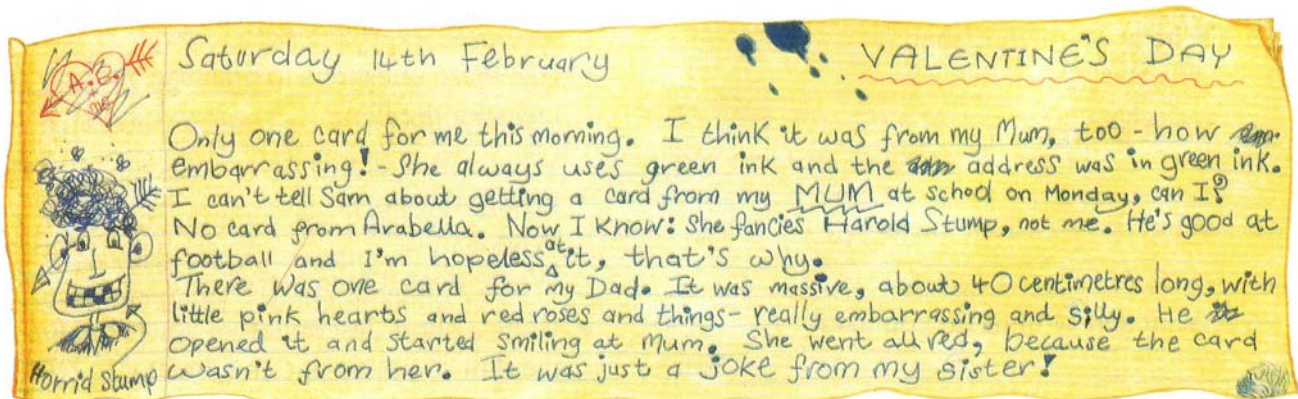 Saturday 14th February VALENTINE'S DAY
A.B.
+
me
Only one card for me this morning. I think it was from my Mum, too - how
embarrassing! - She always uses green ink and the address was in green ink.
I can't tell Sam about getting a card from my MUM at school on Monday, can I?
No card from Arabella. Now I know: She fancies Harold Stump, not me. He's good at
football and I'm hopeless at it, that's why.
There was one card for my Dad. It was massive, about 40 centimetres long, with
little pink hearts and red roses and things - really embarrassing and silly. He
opened it and started smiling at Mum. She went all red, because the card
wasn't from her. It was just a joke from my sister!
Horrid Stump